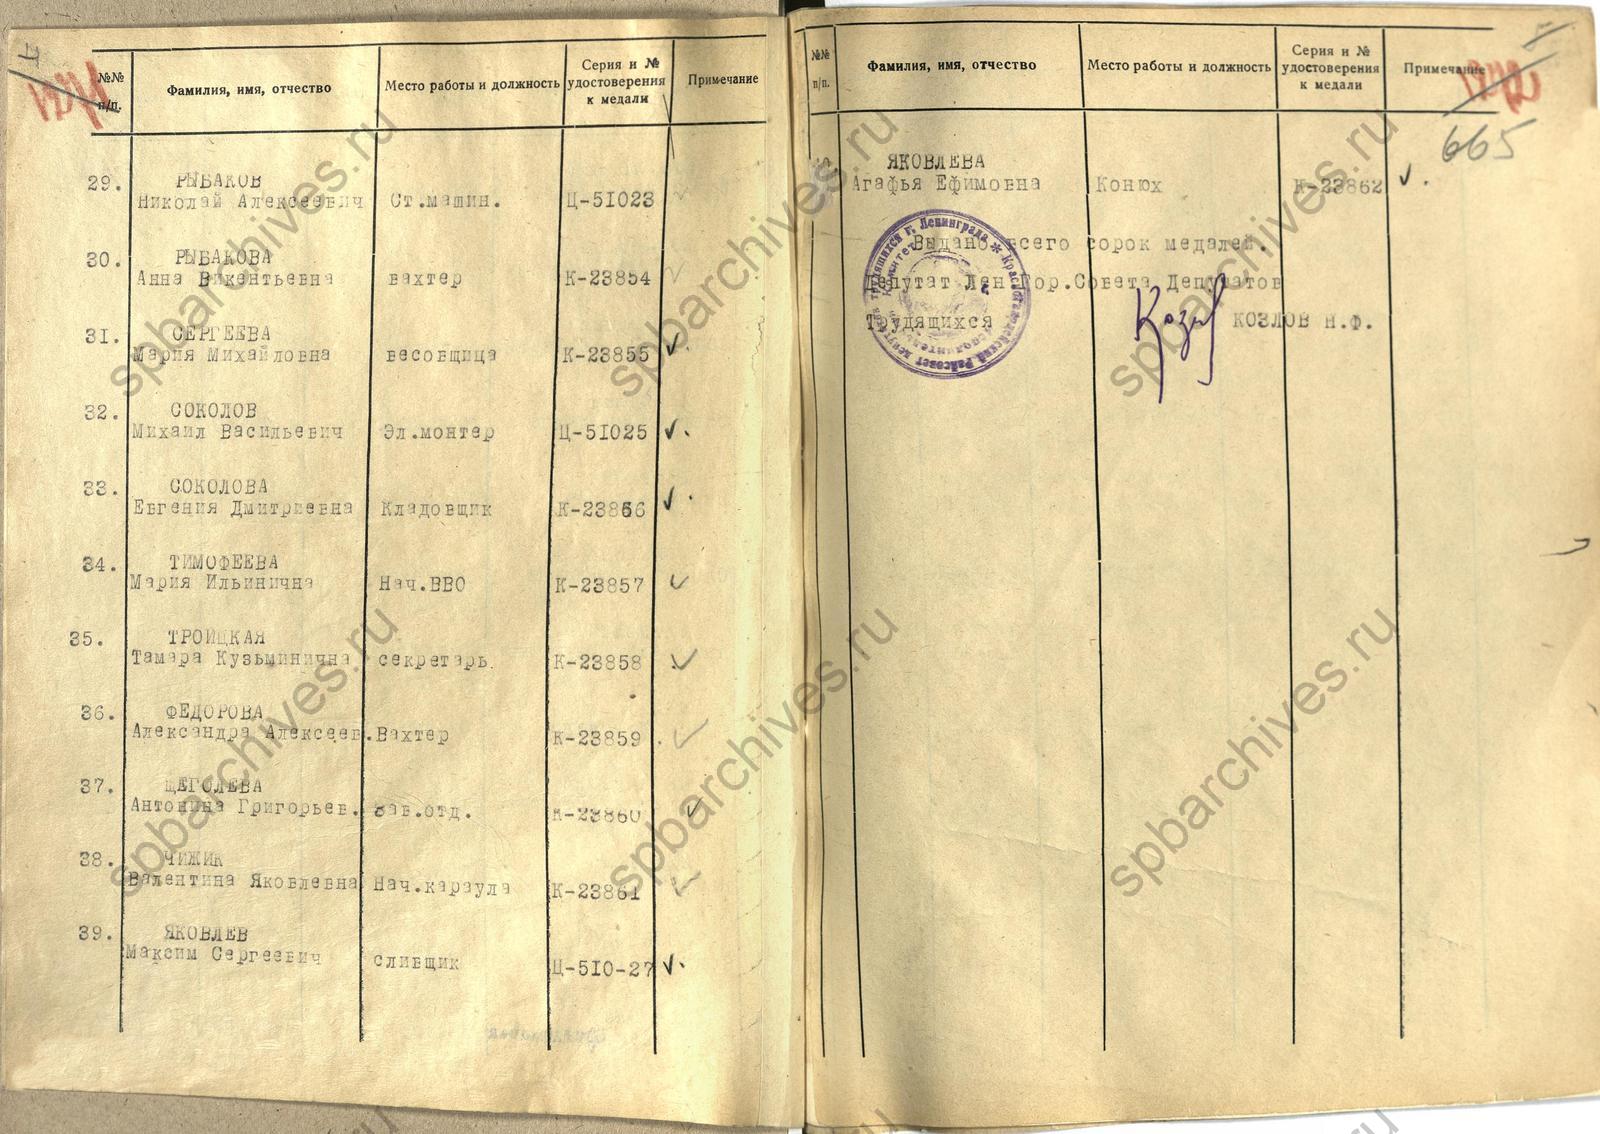 №№ п/п. Фамилия, имя, отчество Место работы и должность Серия и № удостоверения к медали Примечание
29. РЫБАКОВ
Николай Алексеевич Ст.машин. Ц-51023
30. РЫБАКОВА
Анна Викентьевна вахтер К-23854
31. СЕРГЕЕВА
Мария Михайловна весовщица К-23855 ✓.
32. СОКОЛОВ
Михаил Васильевич Эл.монтер Ц-51025 ✓.
33. СОКОЛОВА
Евгения Дмитриевна Кладовщик К-23856 ✓.
34. ТИМОФЕЕВА
Мария Ильинична Нач.ВВО К-23857 ✓
35. ТРОИЦКАЯ
Тамара Кузьминична секретарь К-23858 ✓
36. ФЕДОРОВА
Александра Алексеев. Вахтер К-23859 ✓
37. ЩЕГОЛЕВА
Антонина Григорьев. Зав.отд. К-23860 ✓
38. ЧИЖИК
Валентина Яковлевна Нач.караула К-23861 ✓
39. ЯКОВЛЕВ
Максим Сергеевич сливщик Ц-510-27 ✓.
№№ п/п. Фамилия, имя, отчество Место работы и должность Серия и № удостоверения к медали Примечание
665
ЯКОВЛЕВА
Агафья Ефимовна Конюх К-23862 ✓.
Выдано всего сорок медалей.
Депутат Лен.Гор.Совета Депутатов
Трудящихся КОЗЛОВ Н.Ф.
spbarchives.ru
spbarchives.ru
spbarchives.ru
spbarchives.ru
spbarchives.ru
spbarchives.ru